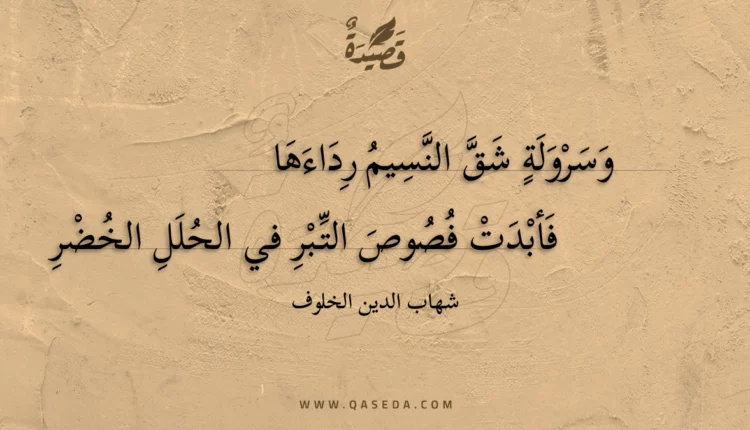 قَصِيدَةٌ
وَسَرْوَلَةٍ شَقَّ النَّسِيمُ رِدَاءَهَا
فَأبْدَتْ فُصُوصَ التِّبْرِ في الحُلَلِ الخُضْرِ
شهاب الدين الخلوف
WWW.QASEDA.COM